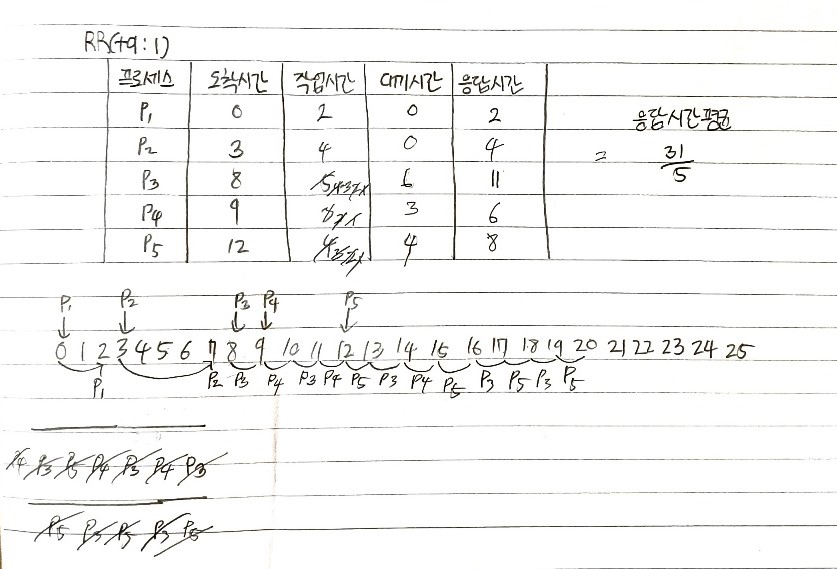 RR(tq:1)
프로세스 도착시간 작업시간 대기시간 응답시간
P1 0 2 0 2 응답시간평균
P2 3 4 0 4 = 31/5
P3 8 6 11
P4 9 3 6
P5 12 4 8
P1 P2 P3 P4 P5
0 1 2 3 4 5 6 7 8 9 10 11 12 13 14 15 16 17 18 19 20 21 22 23 24 25
P1 P2 P3 P4 P3 P4 P5 P3 P4 P5 P3 P5 P3 P5
P4 P3 P5 P4 P3 P4 P3